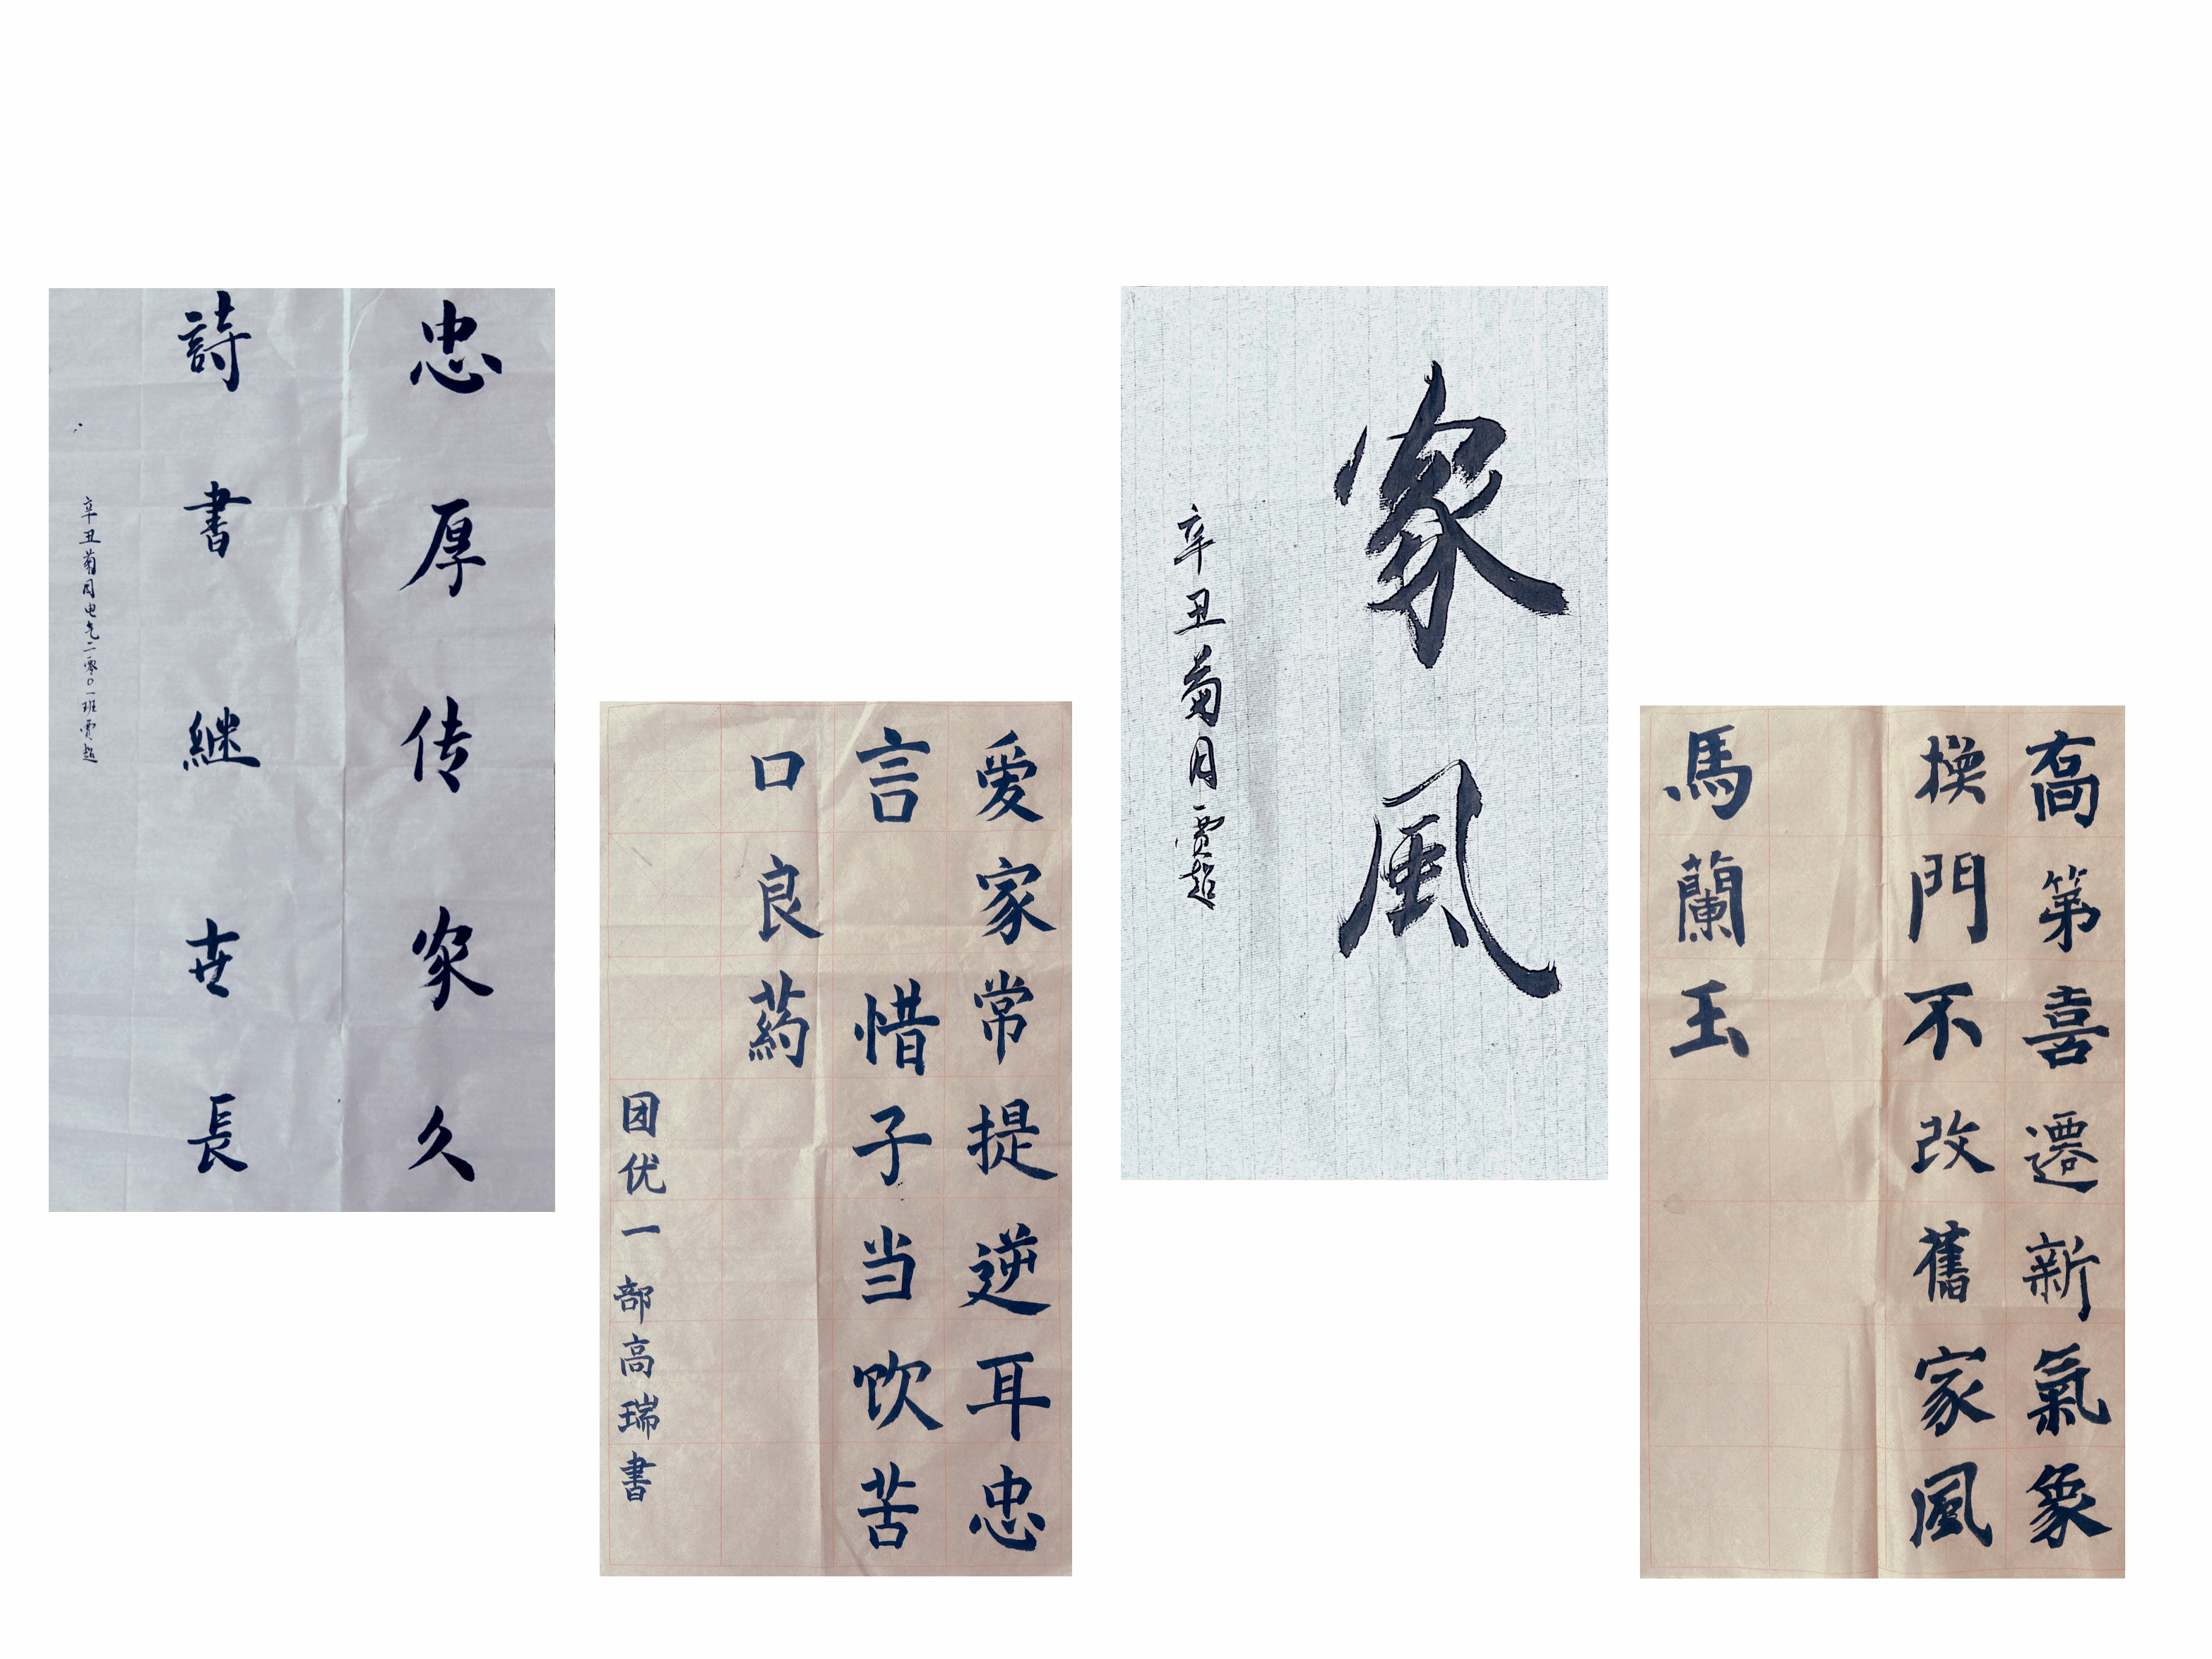 忠厚传家久
詩書継世長
辛丑菊月电气二零〇一班贾超
爱家常提逆耳忠
言 惜子当饮苦
口良药
团优一部高瑞書
家風
辛丑菊月贾超
喬第喜遷新氣象
换門不改舊家風
馬蘭玉